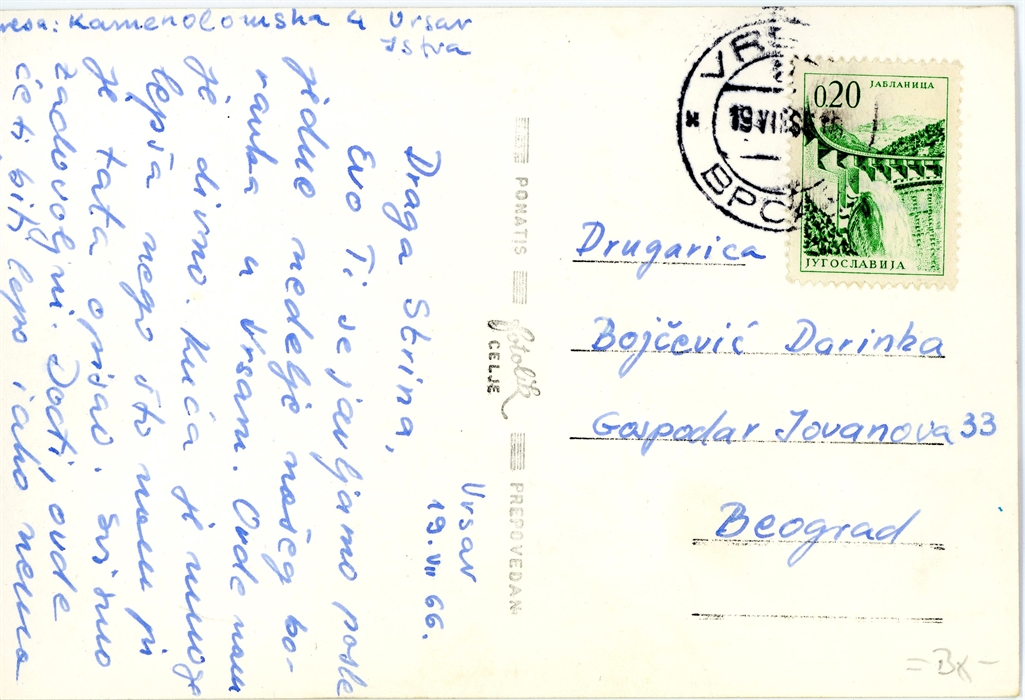 Kamenolomska 4 Vrsar
Istra
Vrsar
19. VII 66.
Draga Strina,
Evo Ti se javljamo posle
jedne nedelje našeg bo-
ravka u Vrsaru. Ovde nam
je divno. Kuća je mnogo
lepša nego što nam
je tata opisao. Svi smo
zadovoljni. Dođi, ovde
će ti biti lepo iako nema
PONATIS
fotolik
CELJE
PREPOVEDAN
BPČ
19 VII
0,20
ЈАБЛАНИЦА
ЈУГОСЛАВИЈА
Drugarica
Bojčević Darinka
Gospodar Jovanova 33
Beograd